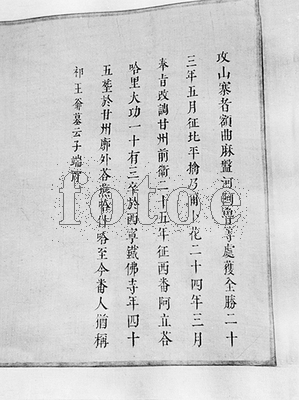 攻山寨者額曲麻盤河阿魯等處獲全勝二十
三年五月征北平擒乃爾卜花二十四年三月
奉旨改調甘州前衛二十五年征西番阿立荅
哈里大功一十有三卒於西寧鐵佛寺年四十
五塟於甘州廓外名偉略至今番人猶稱
祁王翁墓云子端嗣
fotoe